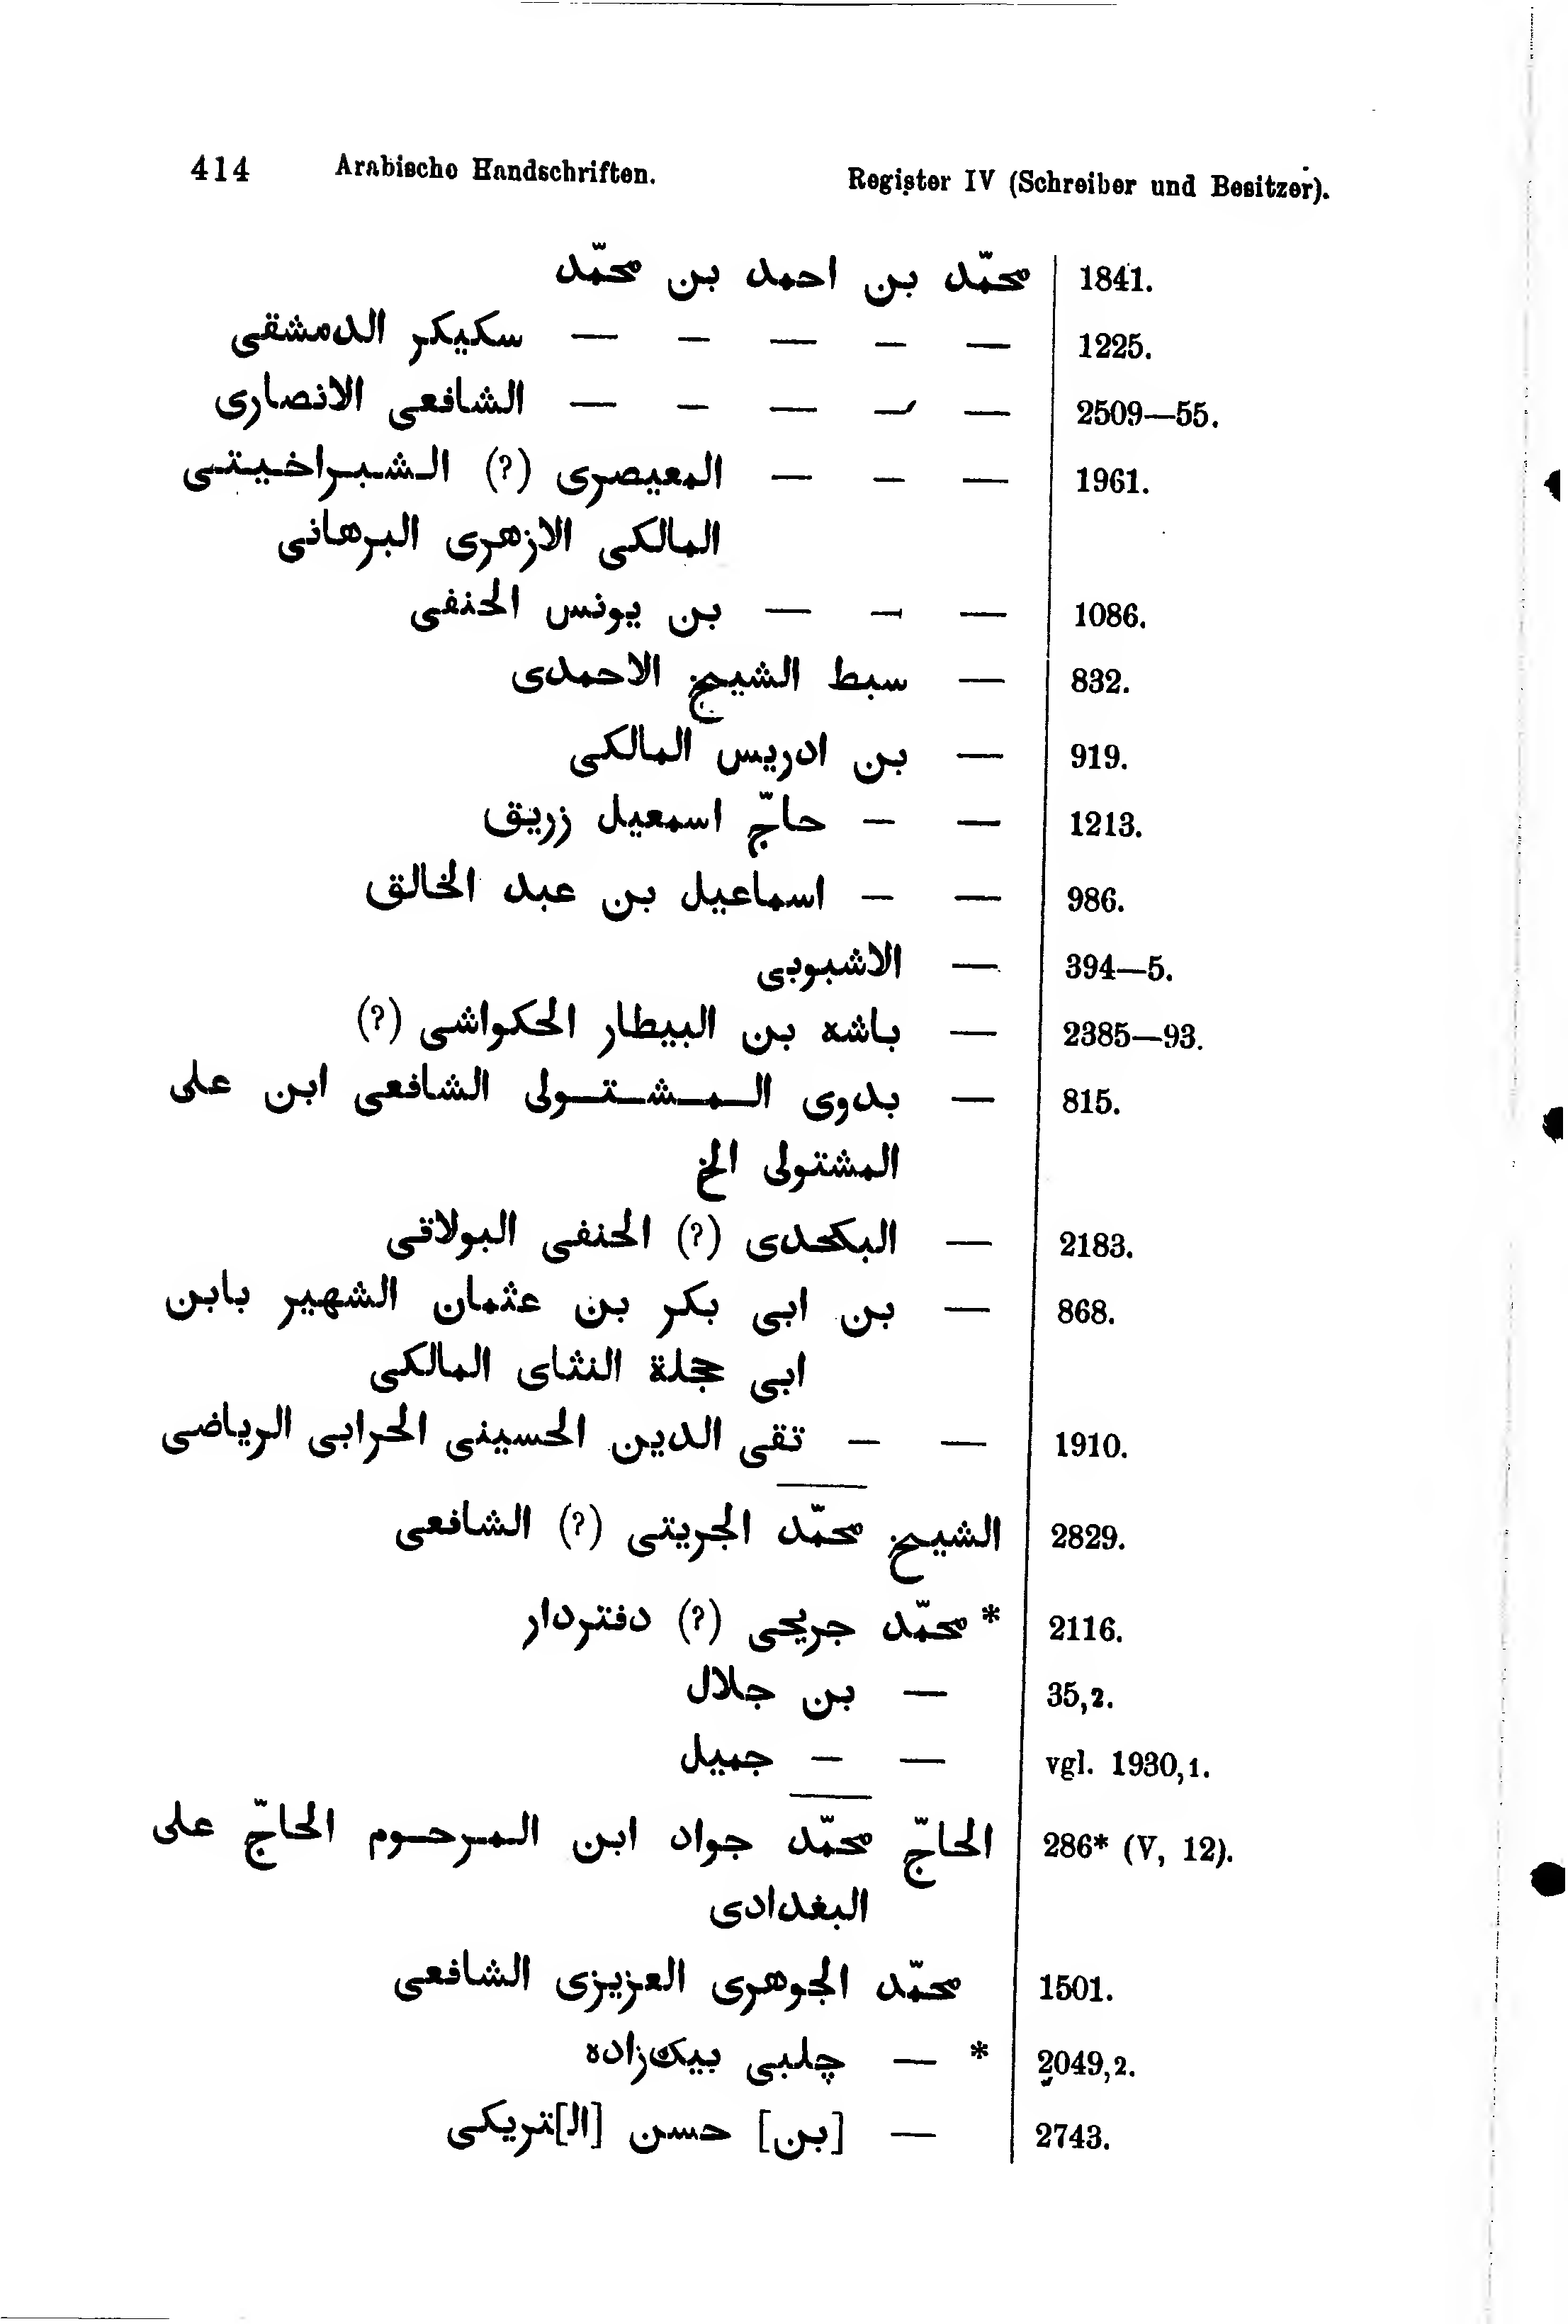 414 Arabische Handschriften. Register IV (Schreiber und Besitzer).
محمّد بن احمد بن محمّد 1841.
— — — — — سكيكر الدمشقى 1225.
— — — — — الشافعى الانصارى 2509—55.
— — — المعيصرى (?) الشبراخيتى 1961.
المالكى الازهرى البرهانى
— — — بن يونس الحنفى 1086.
— سبط الشيخ الاحمدى 832.
— بن ادريس المالكى 919.
— — حاجّ اسمعيل زريق 1213.
— — اسماعيل بن عبد الخالق 986.
— الاشبوبى 394—5.
— باشه بن البيطار الحكواشى (?) 2385—93.
— بدوى المشتولى الشافعى ابن على 815.
المشتولى الخ
— البكحدى (?) الحنفى البولاقى 2183.
— بن ابى بكر بن عثمان الشهير بابن 868.
ابى حجلة النثاى المالكى
— — تقى الدين الحسينى الحرابى الرياضى 1910.
الشيخ محمّد الجريتى (?) الشافعى 2829.
* محمّد جريحى (?) دفتردار 2116.
— بن جلال 35,2.
— — جميل vgl. 1930,1.
الحاجّ محمّد جواد ابن المرحوم الحاجّ على 286* (V, 12).
البغدادى
محمّد الجوهرى العزيزى الشافعى 1501.
* — چلبى بيكزاده 2049,2.
— [بن] حسن [ال]تريكى 2743.